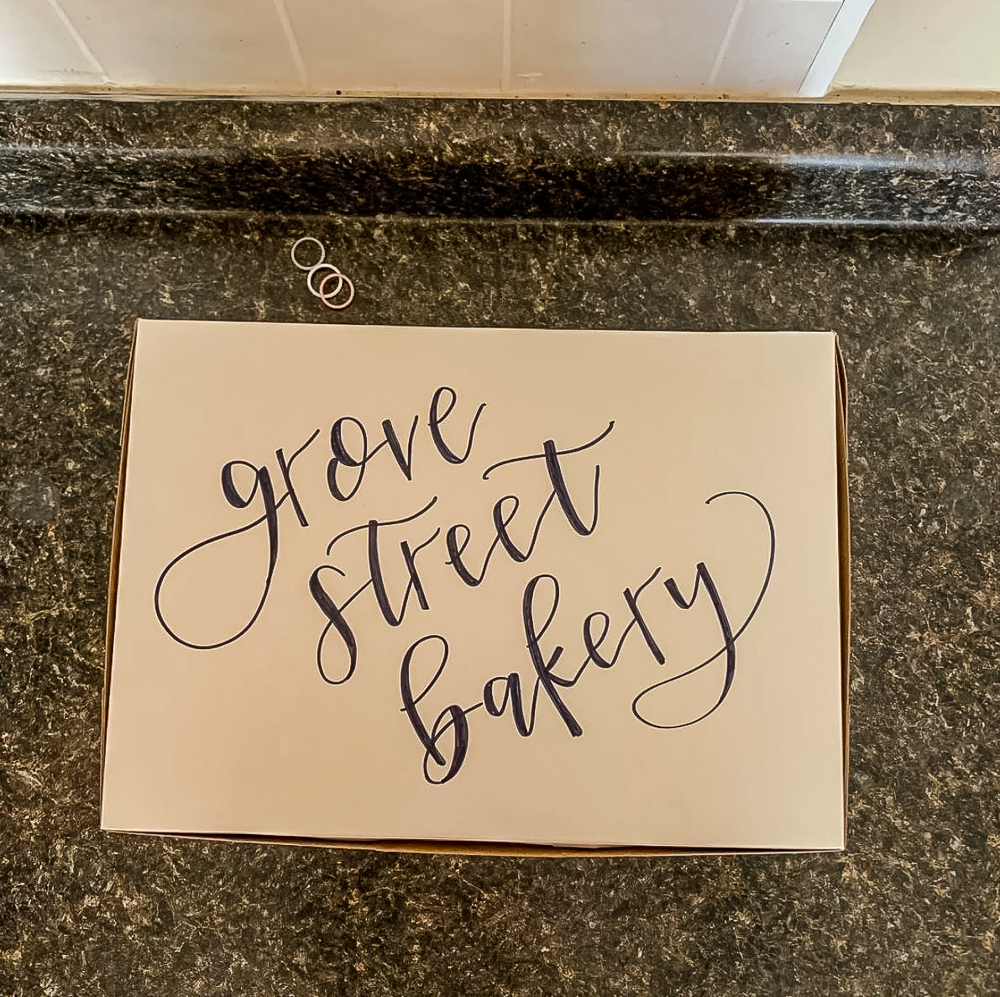 grove
street
bakery